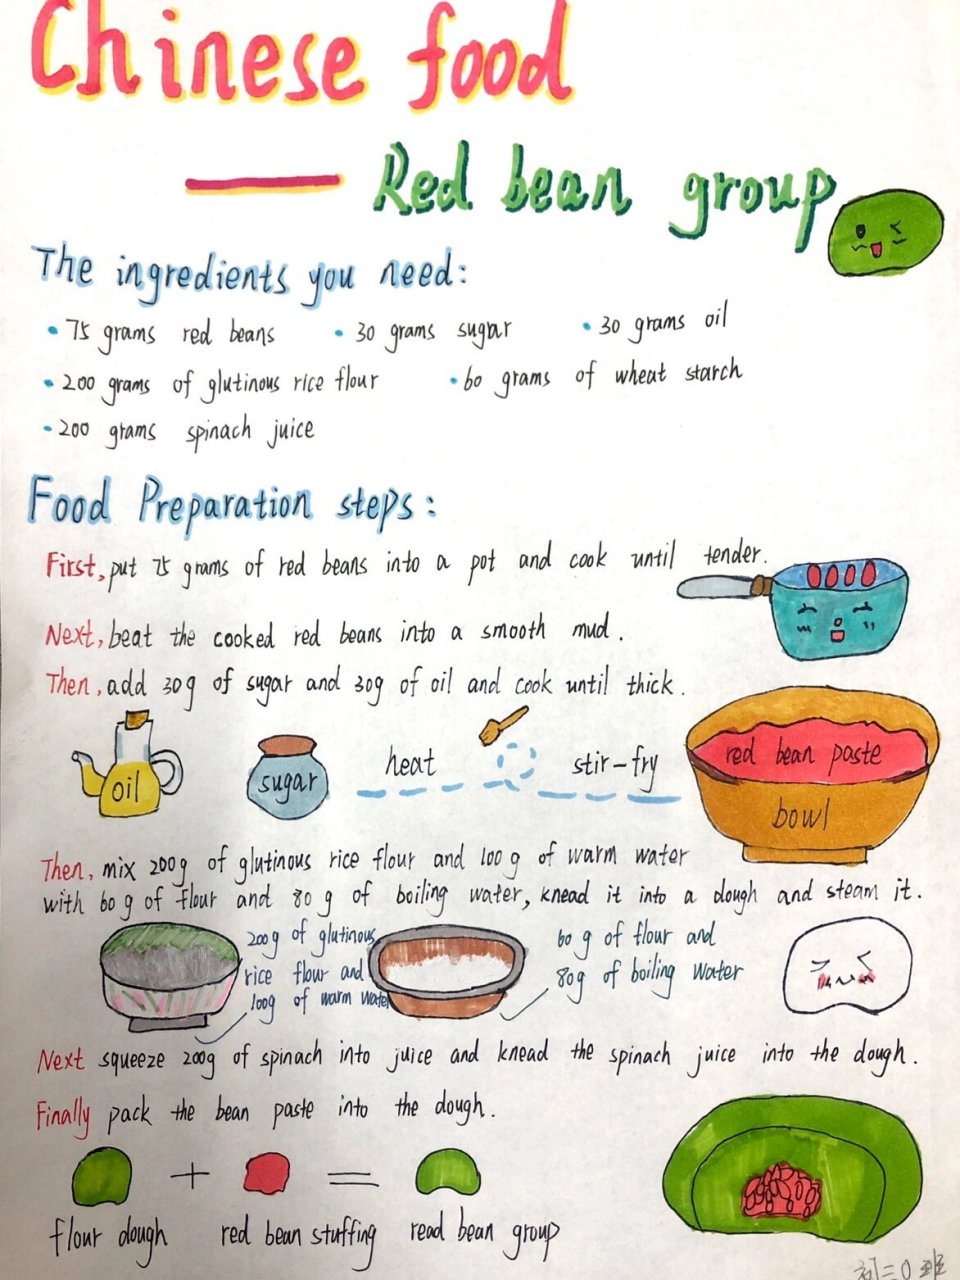 Chinese food
Red bean group
The ingredients you need:
• 75 grams red beans • 30 grams sugar • 30 grams oil
• 200 grams of glutinous rice flour • 60 grams of wheat starch
• 200 grams spinach juice
Food Preparation steps:
First, put 75 grams of red beans into a pot and cook until tender.
Next, beat the cooked red beans into a smooth mud.
Then, add 30g of sugar and 30g of oil and cook until thick.
oil
sugar
heat
stir-fry
red bean paste
bowl
Then, mix 200g of glutinous rice flour and 100g of warm water
with 60g of flour and 80g of boiling water, knead it into a dough and steam it.
200g of glutinous
rice flour and
100g of warm water
60g of flour and
80g of boiling water
Next squeeze 200g of spinach into juice and knead the spinach juice into the dough.
Finally pack the bean paste into the dough.
+ =
flour dough red bean stuffing read bean group